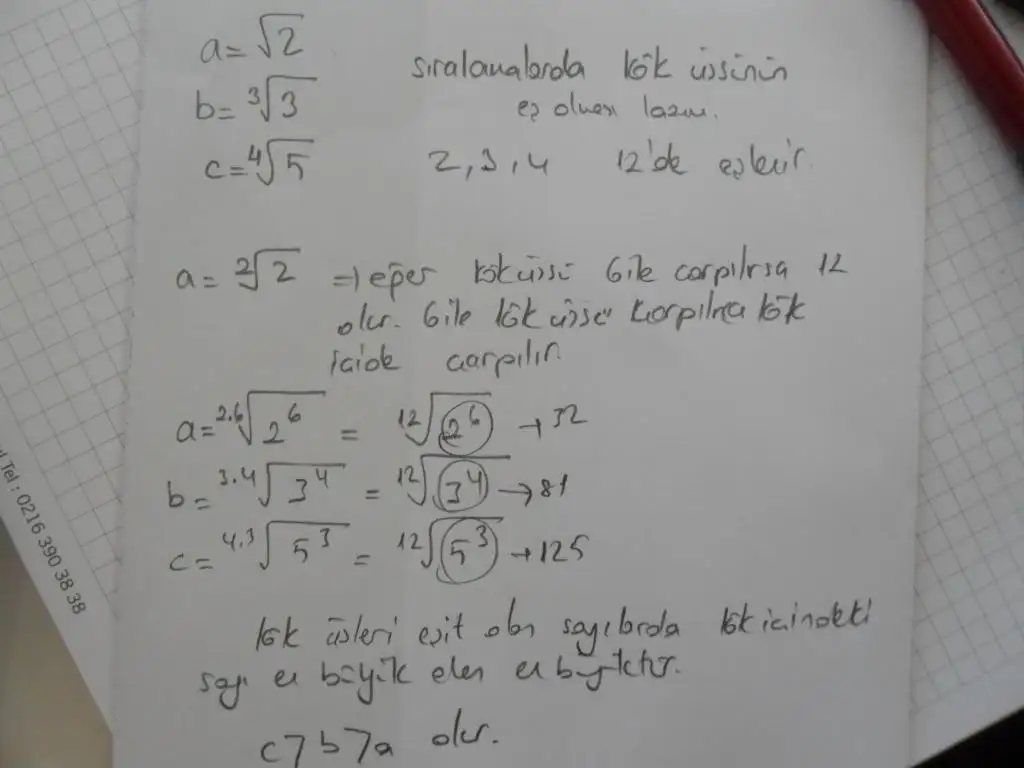 a=√2
sıralamalarda kök üssünün
b=³√3
eş olması lazım.
c=⁴√5
2,3,4 12'de eşlenir.
a=²√2 ⇒ eğer kök üssü 6 ile çarpılırsa 12
olur. 6 ile kök üssü çarpılırsa kök
içide çarpılır.
a=²·⁶√2⁶ = ¹²√2⁶ → 32
b=³·⁴√3⁴ = ¹²√3⁴ → 81
c=⁴·³√5³ = ¹²√5³ → 125
kök üsleri eşit olan sayılarda kök içindeki
sayı en büyük olan en büyüktür.
c>b>a olur.
Tel : 0216 390 38 38